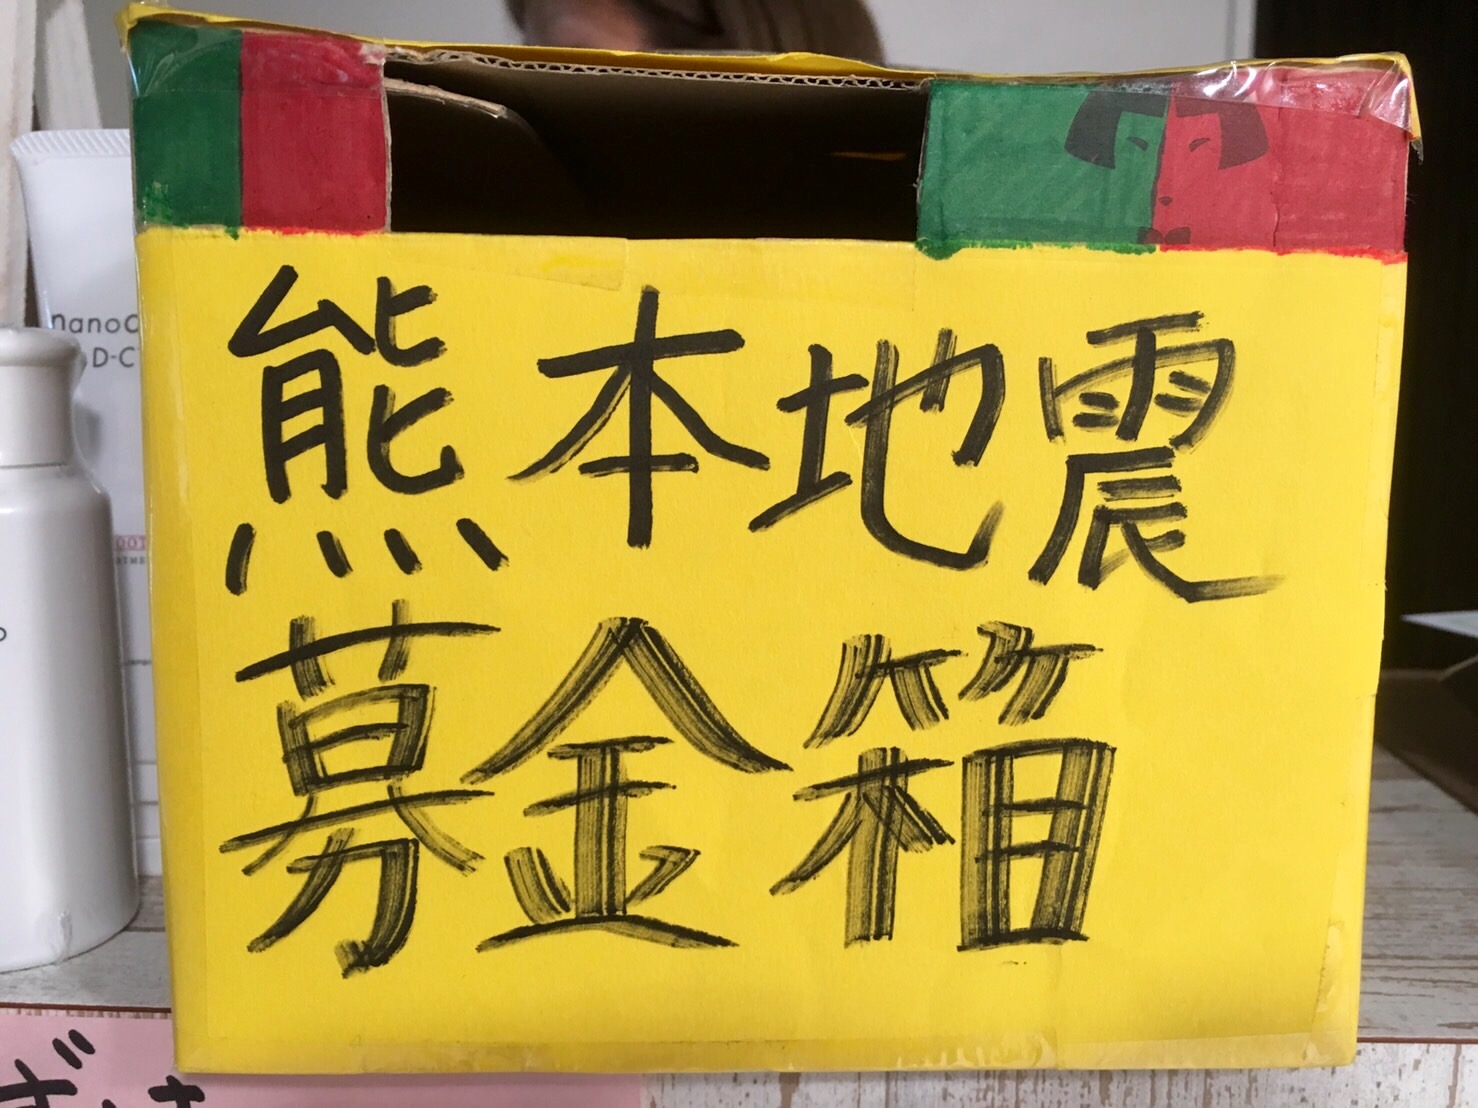 熊本地震
募金箱
nano
D-C